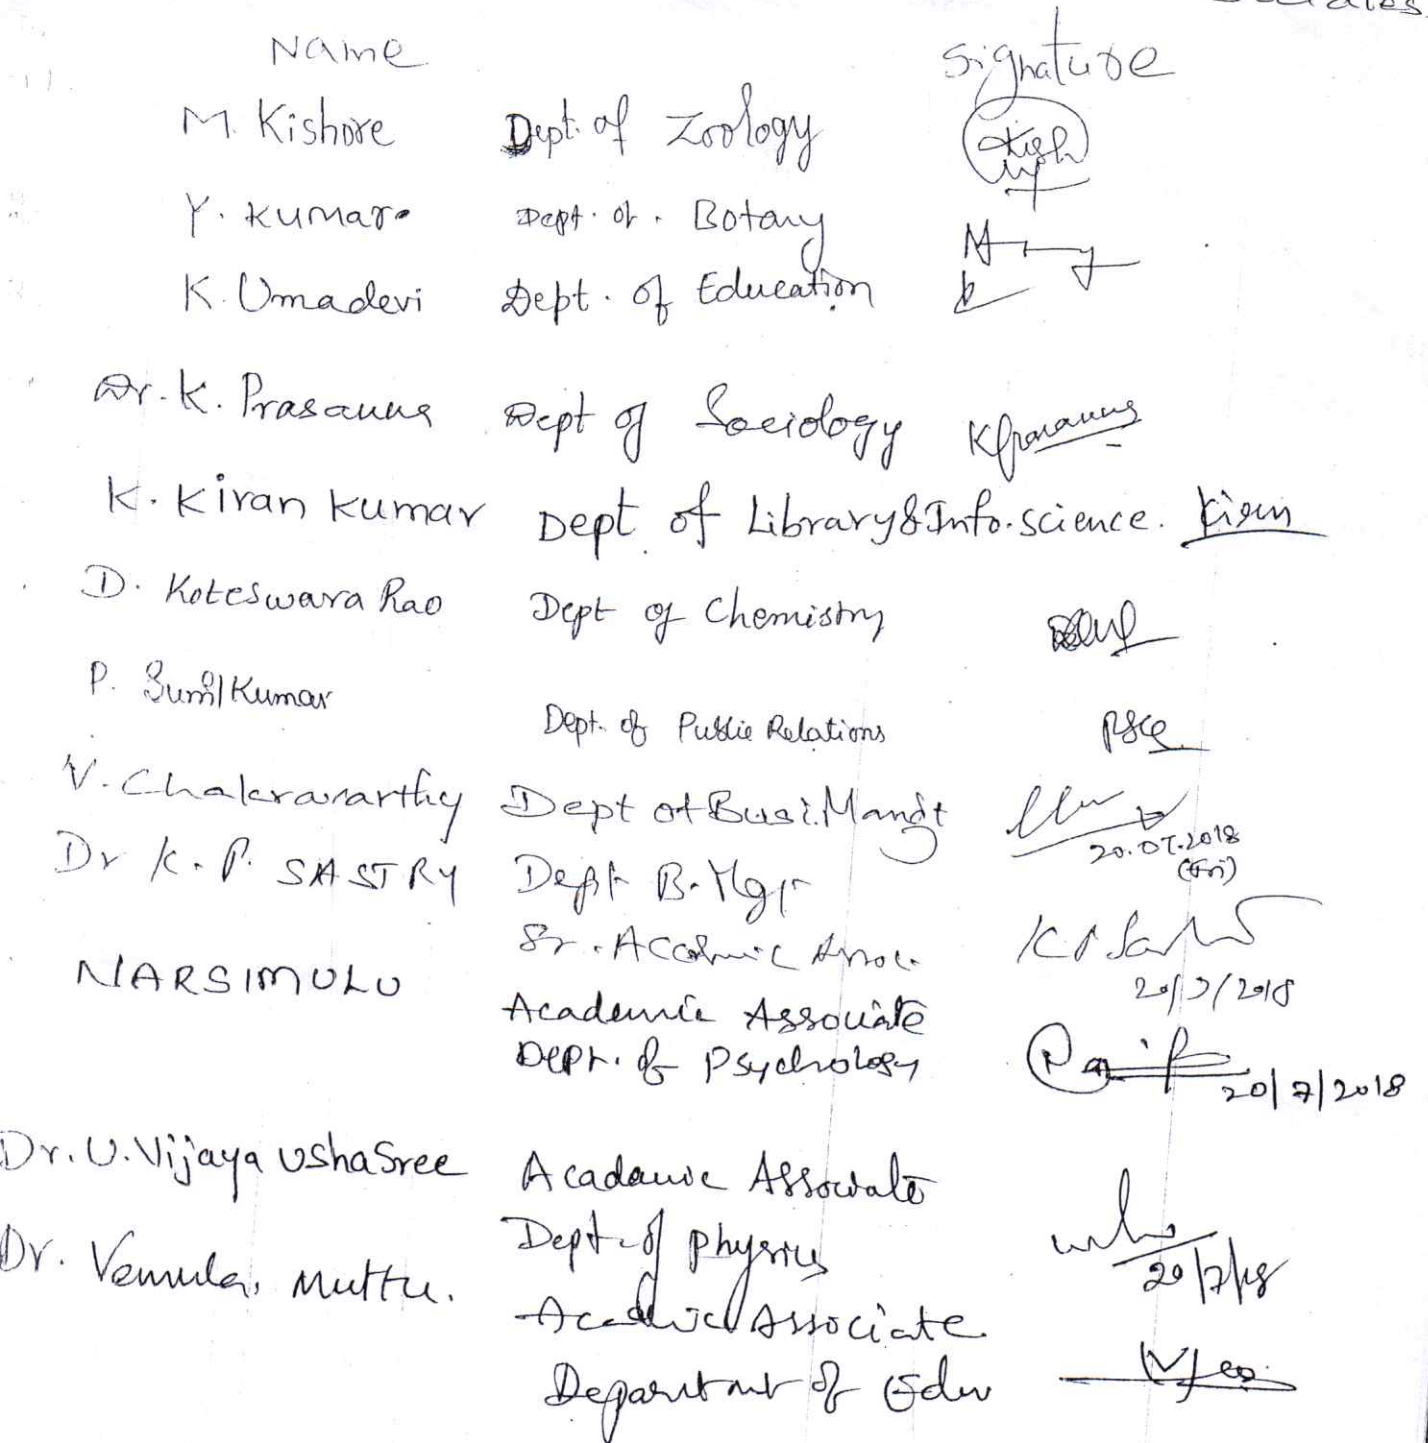 Name Signature
M. Kishore Dept. of Zoology
Y. Kumar Dept. of. Botany
K. Umadevi Dept. of Education
Dr. K. Prasanna Dept of Sociology KPrasanna
K. Kiran Kumar Dept of Library & Info. science. Kiran
D. Koteswara Rao Dept of Chemistry
P. Sunil Kumar
Dept. of Public Relations
V. Chakravarthy Dept of Busi. Mangt
20.07.2018
(Fri)
Dr K. P. SASTRY Dept B. Mgt
Sr. Academic Assoc.
20/7/2018
NARSIMULU
Academic Associate
Dept. of Psychology
20/7/2018
Dr. U. Vijaya UshaSree Academic Associate
Dept. of Physics
20/7/18
Dr. Vemula. Muttu.
Academic Associate
Department of Edu